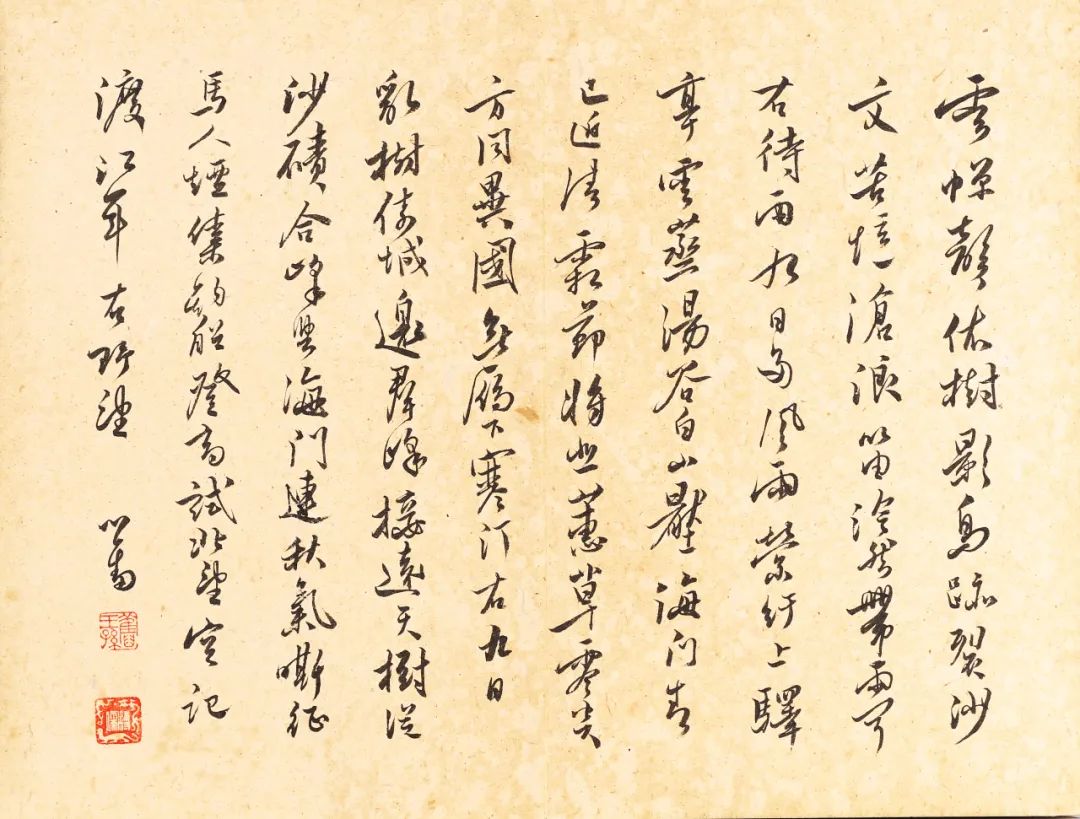 雲蟬聲依樹影鳥跡裂沙
文苦憶滄浪笛泠然帶雨聞
右待雨九日多風雨縈紆上驛
亭雲蒸湯谷白山壓海門青
已近清霜節將悲蕙草零炎
方同異國無雁下寒汀右九日
亂樹依城邊群峰接遠天樹從
沙磧合峰與海門連秋氣嘶征
馬人煙集釣船登高試北望空記
渡江年右野望 心畬
舊王孫